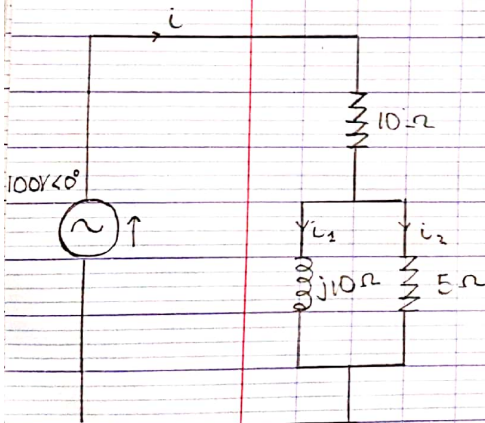 i
10Ω
100V<0°
~
i₁
i₂
j10Ω
5Ω